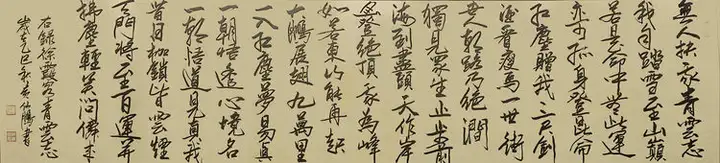 無人扶我青雲志
我自踏雪至山巔
若是命中無此運
亦可孤身登昆侖
紅塵贈我三尺劍
酒香瘦馬一世街
世人朝路乃絕澗
獨見眾生止步前
海到盡頭天作岸
山登絕頂我為峰
如若東山能再起
大鵬展翅九萬里
一入紅塵夢易真
一朝悟透心境名
一朝悟道見真我
昔日枷鎖皆雲煙
天門將至百運開
拂塵輕笑問僊來
右錄徐霞客青雲志
歲在乙巳秋書